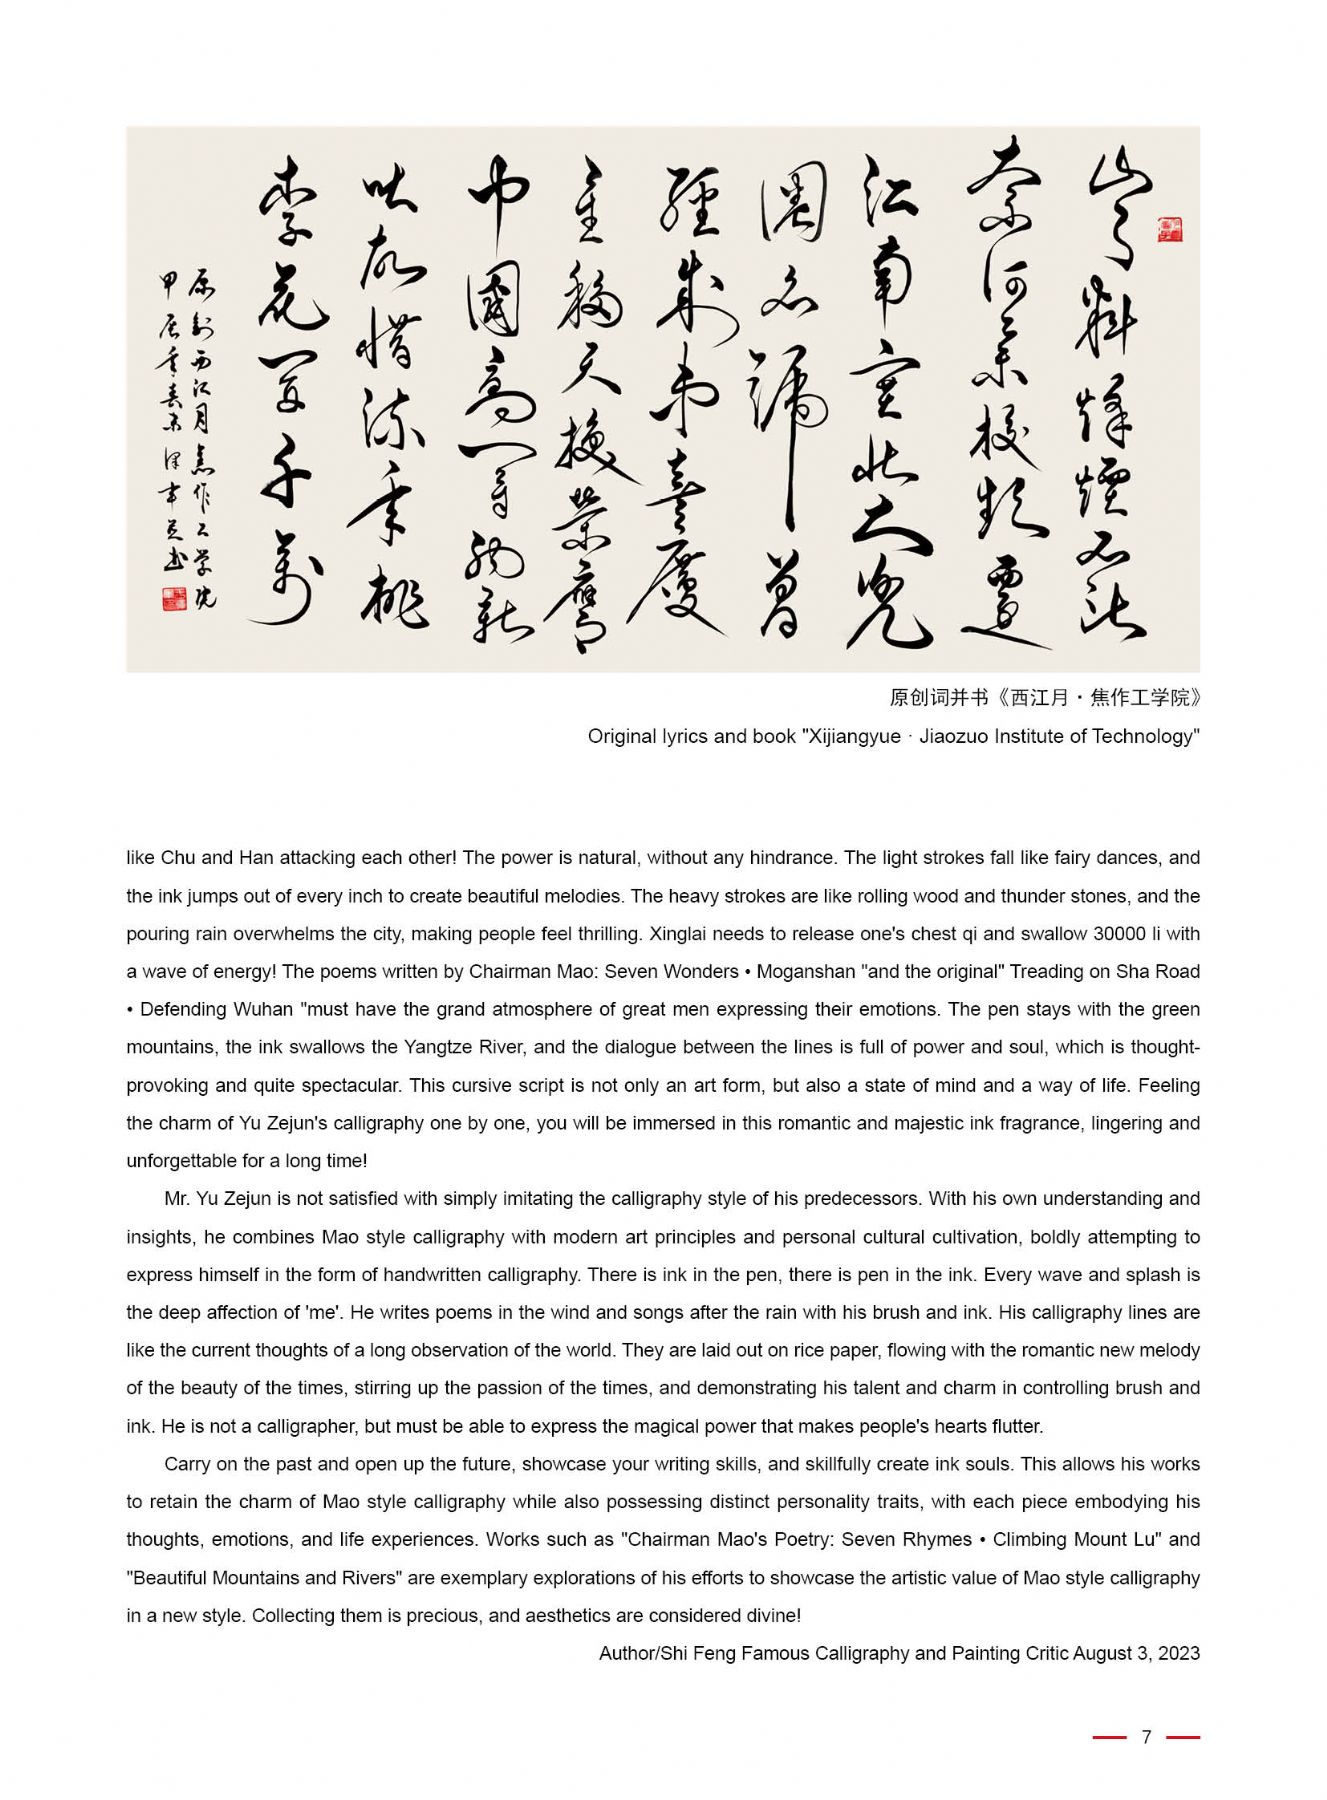 料烽煙
奈何校頻遷
江南塞北
名號曾
經
主移天換榮膺
巾幗高等
惜流年桃
李花開千萬
原創西江月焦作工学院
甲辰年春
原创词并书《西江月·焦作工学院》
Original lyrics and book "Xijiangyue · Jiaozuo Institute of Technology"
like Chu and Han attacking each other! The power is natural, without any hindrance. The light strokes fall like fairy dances, and
the ink jumps out of every inch to create beautiful melodies. The heavy strokes are like rolling wood and thunder stones, and the
pouring rain overwhelms the city, making people feel thrilling. Xinglai needs to release one's chest qi and swallow 30000 li with
a wave of energy! The poems written by Chairman Mao: Seven Wonders • Moganshan "and the original" Treading on Sha Road
• Defending Wuhan "must have the grand atmosphere of great men expressing their emotions. The pen stays with the green
mountains, the ink swallows the Yangtze River, and the dialogue between the lines is full of power and soul, which is thought-
provoking and quite spectacular. This cursive script is not only an art form, but also a state of mind and a way of life. Feeling
the charm of Yu Zejun's calligraphy one by one, you will be immersed in this romantic and majestic ink fragrance, lingering and
unforgettable for a long time!
Mr. Yu Zejun is not satisfied with simply imitating the calligraphy style of his predecessors. With his own understanding and
insights, he combines Mao style calligraphy with modern art principles and personal cultural cultivation, boldly attempting to
express himself in the form of handwritten calligraphy. There is ink in the pen, there is pen in the ink. Every wave and splash is
the deep affection of 'me'. He writes poems in the wind and songs after the rain with his brush and ink. His calligraphy lines are
like the current thoughts of a long observation of the world. They are laid out on rice paper, flowing with the romantic new melody
of the beauty of the times, stirring up the passion of the times, and demonstrating his talent and charm in controlling brush and
ink. He is not a calligrapher, but must be able to express the magical power that makes people's hearts flutter.
Carry on the past and open up the future, showcase your writing skills, and skillfully create ink souls. This allows his works
to retain the charm of Mao style calligraphy while also possessing distinct personality traits, with each piece embodying his
thoughts, emotions, and life experiences. Works such as "Chairman Mao's Poetry: Seven Rhymes • Climbing Mount Lu" and
"Beautiful Mountains and Rivers" are exemplary explorations of his efforts to showcase the artistic value of Mao style calligraphy
in a new style. Collecting them is precious, and aesthetics are considered divine!
Author/Shi Feng Famous Calligraphy and Painting Critic August 3, 2023
7